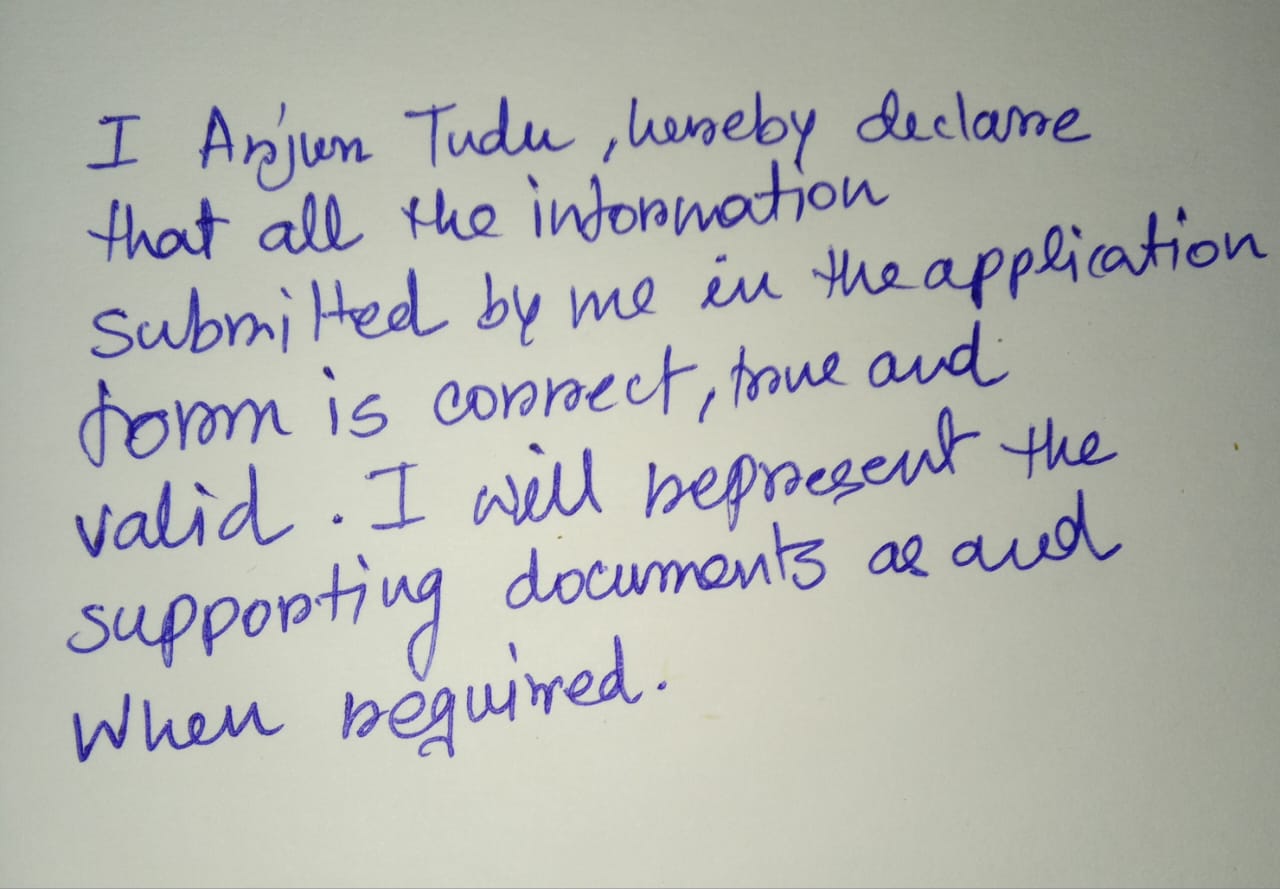 I Arjun Tudu, hereby declare
that all the information
submitted by me in the application
form is correct, true and
valid. I will represent the
supporting documents as and
when required.